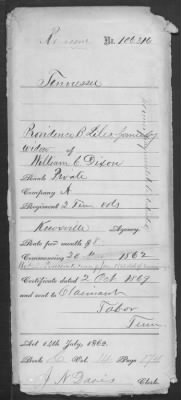 No. 106,216
Tennessee
Providence P. Liles formerly
widow of
William C Dixon
Rank Private
Company A
Regiment 2 Tenn vols
Knoxville Agency.
Rate per month $8
Commencing 20th 1862
Certificate dated 2 Oct 1869
and sent to Claimant
Tabor
Tenn
Act 14th July, 1862.
Book Vol. Page 274
J. N. Davis Clerk.